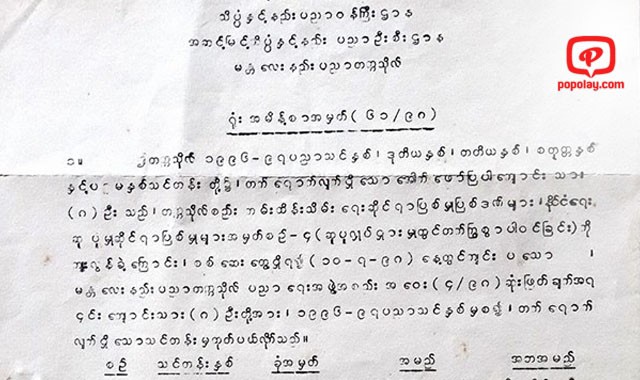 သိပ္ပံနှင့်နည်းပညာဝန်ကြီးဌာန
အဆင့်မြင့်သိပ္ပံနှင့်နည်းပညာဦးစီးဌာန
မန္တလေးနည်းပညာတက္ကသိုလ်
popolay.com
ရုံးအမိန့်စာအမှတ်(၆၁/၉၈)
၁။ တက္ကသိုလ် ၁၉၉၆-၉၇ပညာသင်နှစ်၊ ဒုတိယနှစ်၊ တတိယနှစ်၊ စတုတ္ထနှစ်
နှင့်ပဉ္စမနှစ်သင်တန်း တို့၌၊ တက် ရောက်လျက်ရှိ သော အောက် ဖော်ပြပါကျောင်း သား
(၈)ဦး သည်၊ တက္ကသိုလ်စည်း ကမ်းထိန်းသိမ်း ရေးဆိုင်ရာပြစ်မှုပြစ်ဒဏ်များ၊ နိုင်ငံရေး
ဆူ ပူမှုဆိုင်ရာပြစ်မှုများအမှတ်စဉ်-၄(ဆူပူလှုပ်ရှားမှုတွင်တက်ကြွစွာပါဝင်ခြင်း)ကို
ကျူးလွန်ခဲ့ကြောင်း၊ စစ်ဆေး တွေ့ရှိရ၍ (၁၀-၇-၉၈) နေ့တွင်ကျင်း ပ သော
မန္တလေးနည်းပညာတက္ကသိုလ် ပညာ ရေးအဖွဲ့အစည်း အ ဝေး (၄/၉၈)ဆုံးဖြတ်ချက်အရ
၎င်း ကျောင်းသား(၈)ဦးတို့အား၊ ၁၉၉၆-၉၇ပညာသင်နှစ်မှစ၍၊ တက် ရောက်
လျက်ရှိ သောသင်တန်းမှထုတ်ပယ်လိုက်သည်။
စဉ် သင်တန်းနှစ် ခုံအမှတ် အမည် အဘအမည်